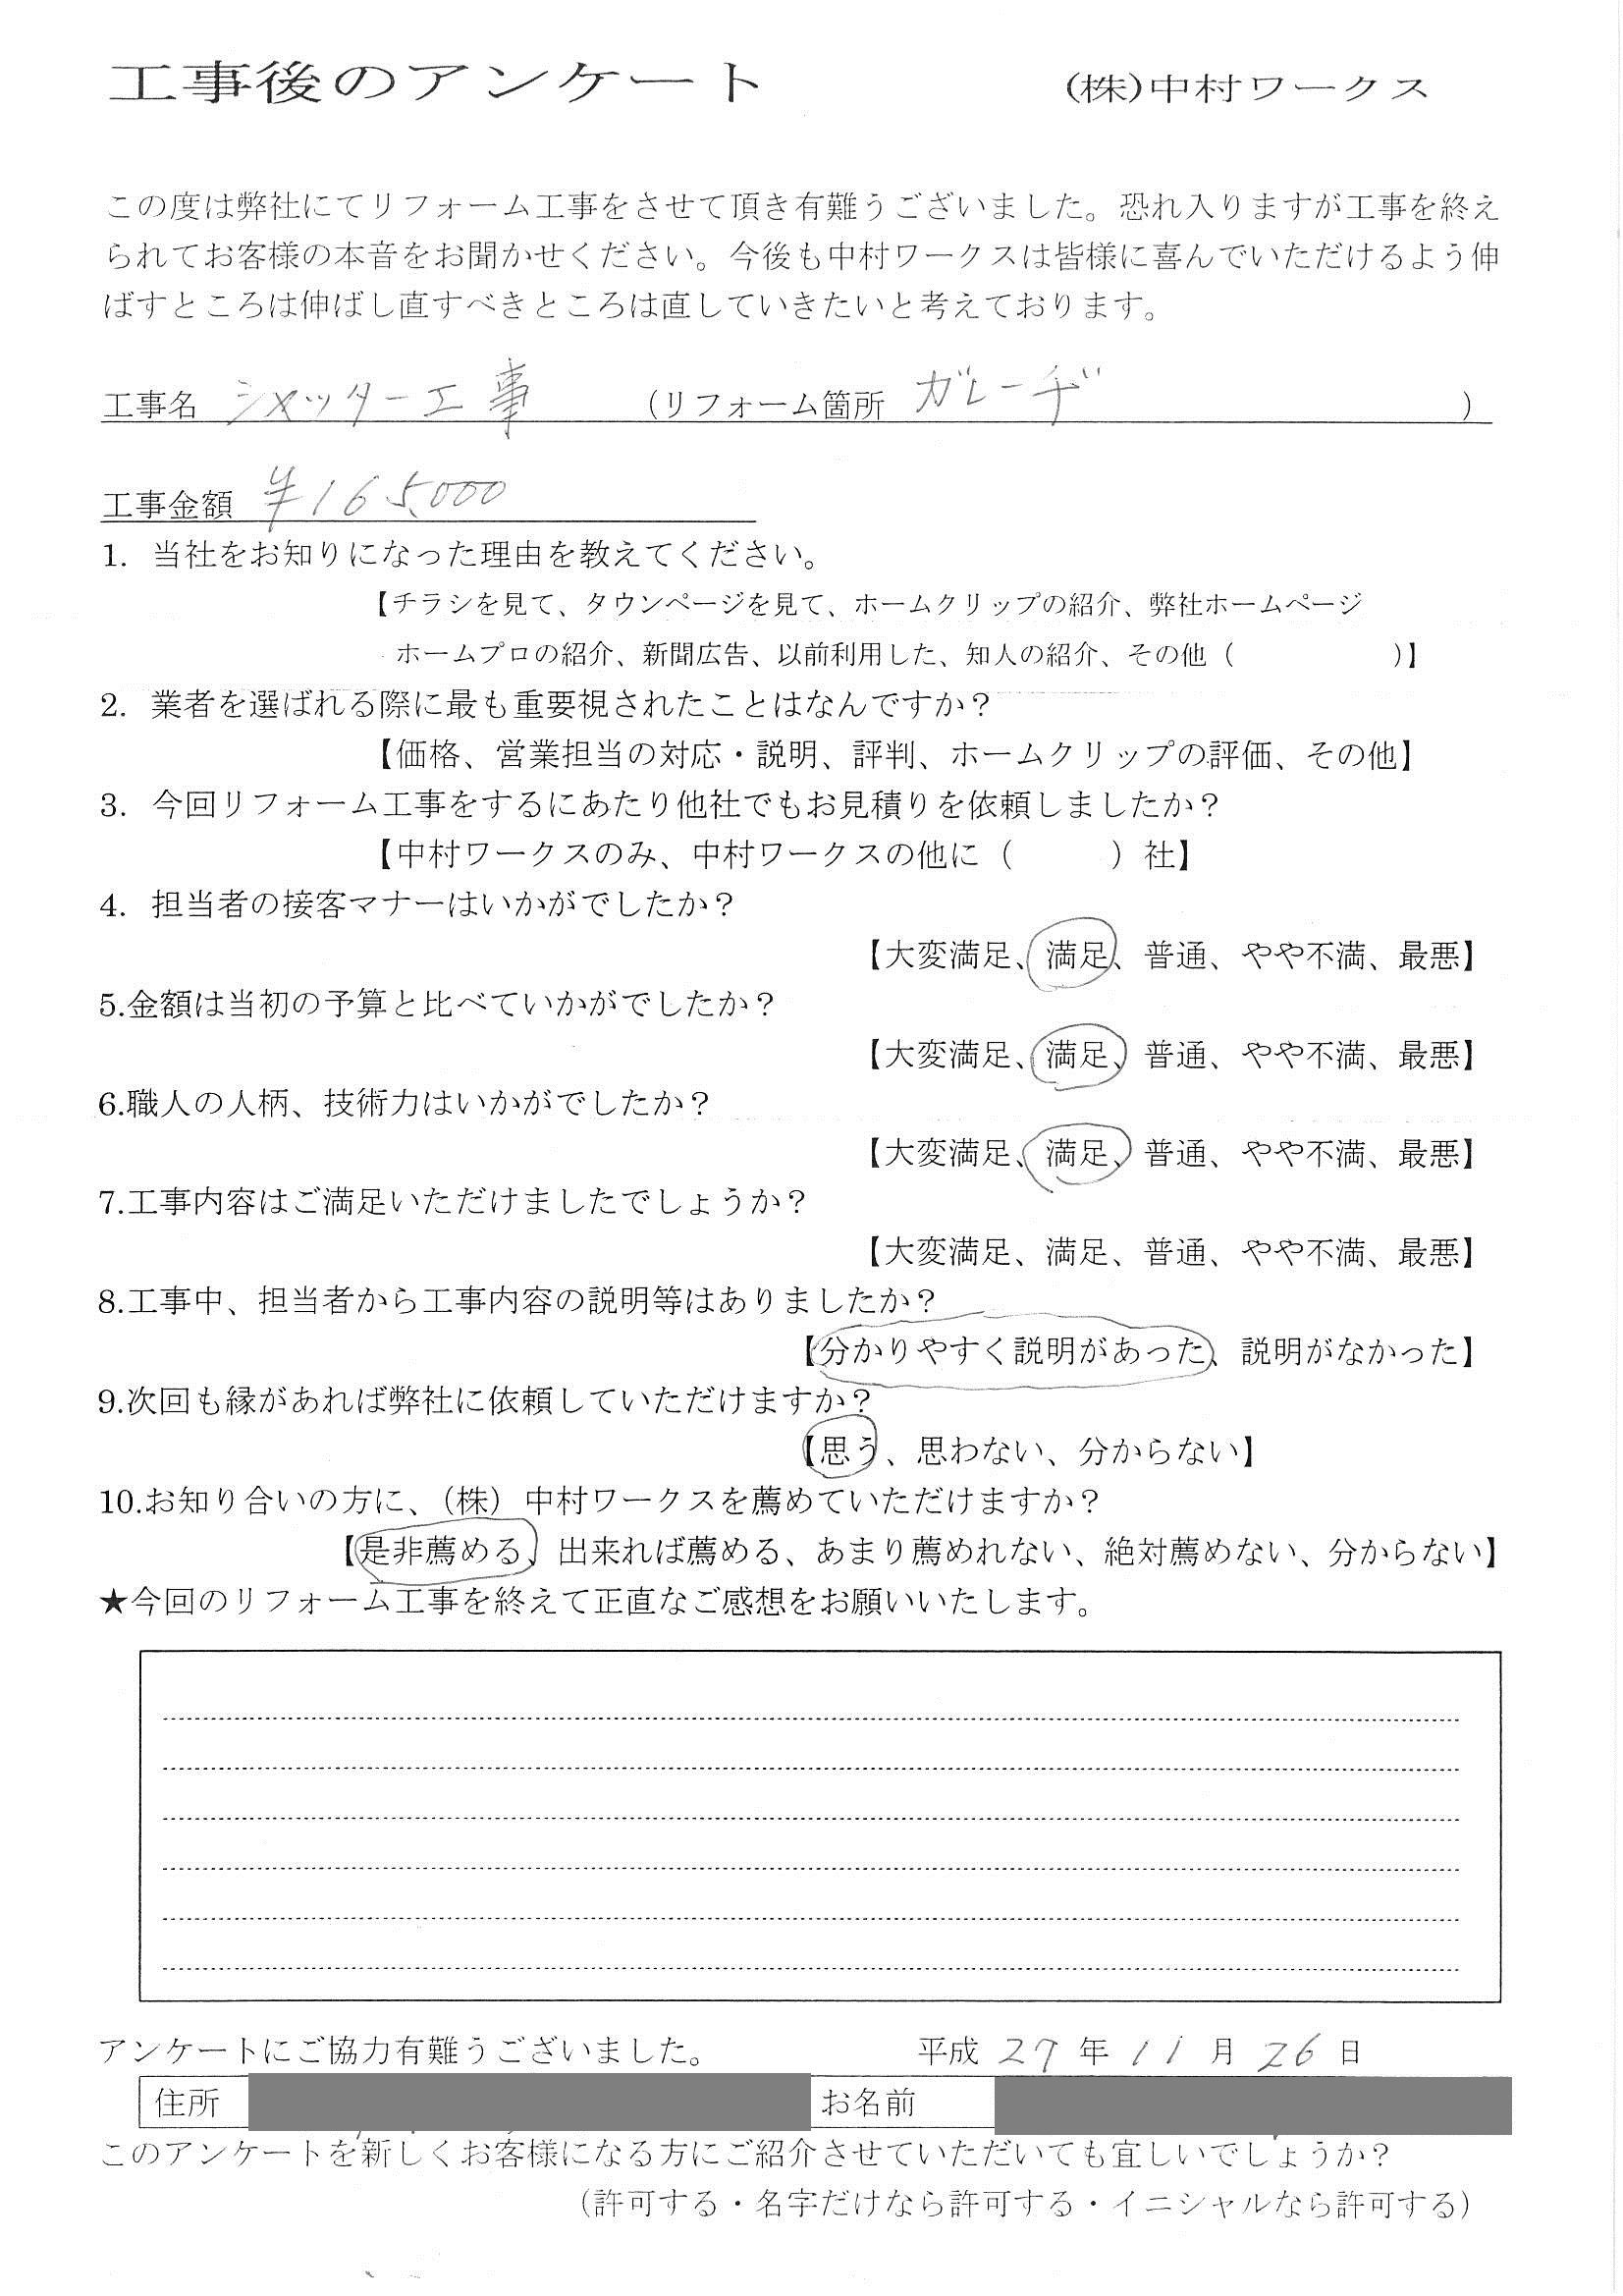 工事後のアンケート　(株)中村ワークス
この度は弊社にてリフォーム工事をさせて頂き有難うございました。恐れ入りますが工事を終え
られてお客様の本音をお聞かせください。今後も中村ワークスは皆様に喜んでいただけるよう伸
ばすところは伸ばし直すべきところは直していきたいと考えております。
工事名 シャッター工事 （リフォーム箇所 ガレーヂ ）
工事金額 ¥165,000
1. 当社をお知りになった理由を教えてください。
【チラシを見て、タウンページを見て、ホームクリップの紹介、弊社ホームページ
ホームプロの紹介、新聞広告、以前利用した、知人の紹介、その他（ )】
2. 業者を選ばれる際に最も重要視されたことはなんですか？
【価格、営業担当の対応・説明、評判、ホームクリップの評価、その他】
3. 今回リフォーム工事をするにあたり他社でもお見積りを依頼しましたか？
【中村ワークスのみ、中村ワークスの他に（ ）社】
4. 担当者の接客マナーはいかがでしたか？
【大変満足、満足、普通、やや不満、最悪】
5.金額は当初の予算と比べていかがでしたか？
【大変満足、満足、普通、やや不満、最悪】
6.職人の人柄、技術力はいかがでしたか？
【大変満足、満足、普通、やや不満、最悪】
7.工事内容はご満足いただけましたでしょうか？
【大変満足、満足、普通、やや不満、最悪】
8.工事中、担当者から工事内容の説明等はありましたか？
【分かりやすく説明があった、説明がなかった】
9.次回も縁があれば弊社に依頼していただけますか？
【思う、思わない、分からない】
10.お知り合いの方に、（株）中村ワークスを薦めていただけますか？
【是非薦める、出来れば薦める、あまり薦めれない、絶対薦めない、分からない】
★今回のリフォーム工事を終えて正直なご感想をお願いいたします。
アンケートにご協力有難うございました。 平成 27 年 11 月 26 日
住所 お名前
このアンケートを新しくお客様になる方にご紹介させていただいても宜しいでしょうか？
（許可する・名字だけなら許可する・イニシャルなら許可する）